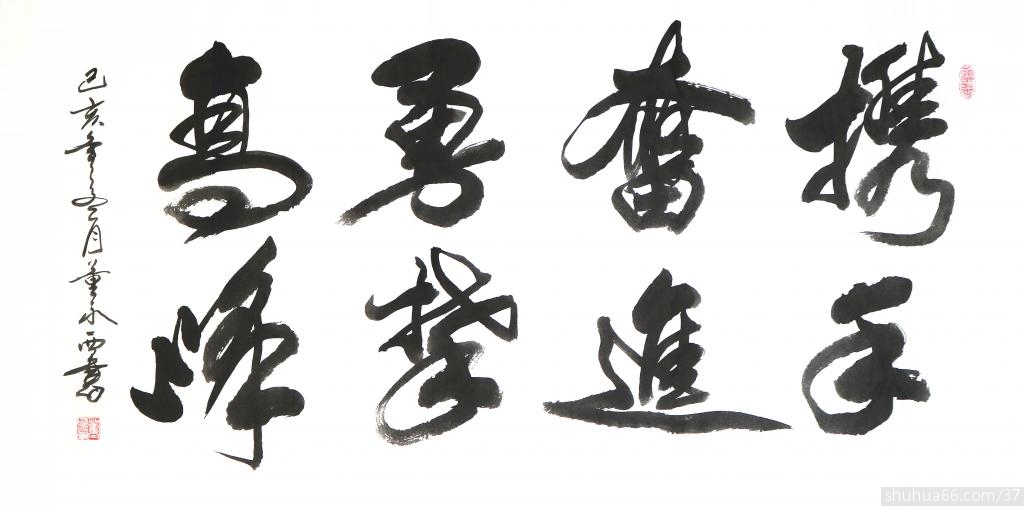 攜手
奮進
勇攀
高峰
己亥年之三月董永西書
shuhua66.com/37